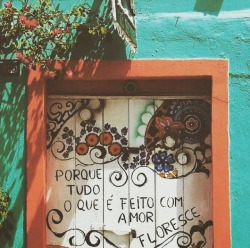 PORQUE
TUDO
O QUE É FEITO COM
AMOR
FLORESCE